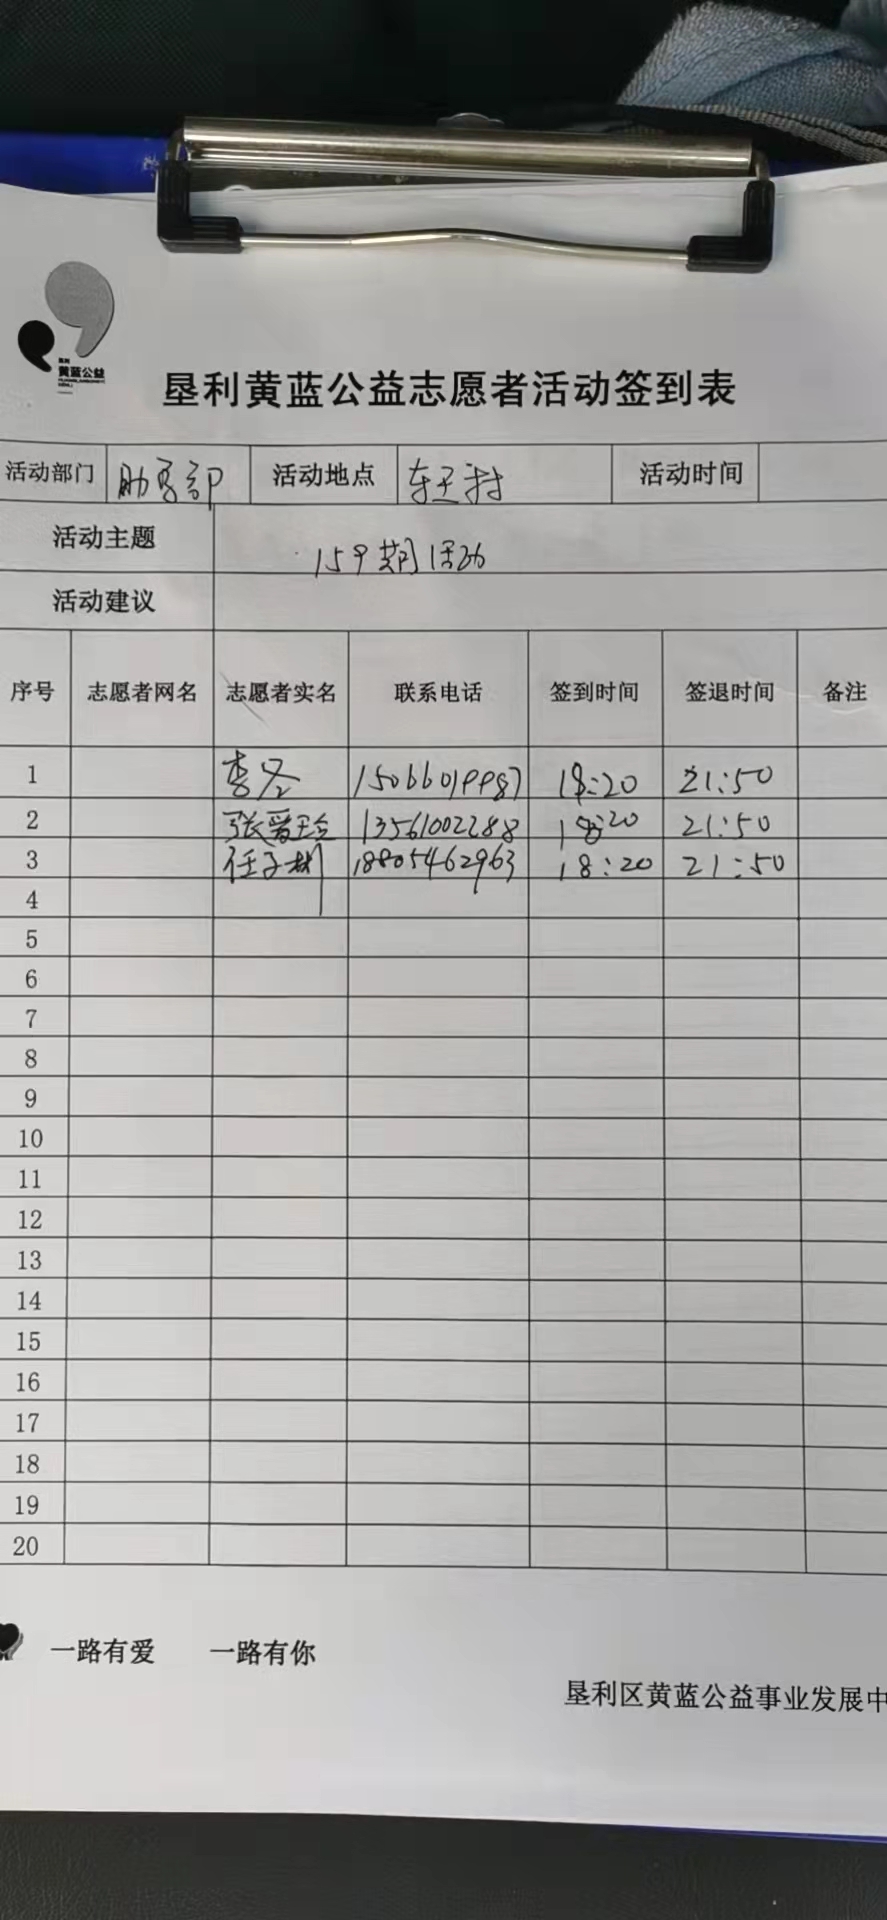 垦利
黄蓝公益
垦利黄蓝公益志愿者活动签到表
活动部门 助学部 活动地点 东王村 活动时间
活动主题 159期活动
活动建议
序号 志愿者网名 志愿者实名 联系电话 签到时间 签退时间 备注
1 李 15066019987 18:20 21:50
2 张爱玲 13561002288 18:20 21:50
3 任子彬 18805462963 18:20 21:50
4
5
6
7
8
9
10
11
12
13
14
15
16
17
18
19
20
一路有爱 一路有你
垦利区黄蓝公益事业发展中